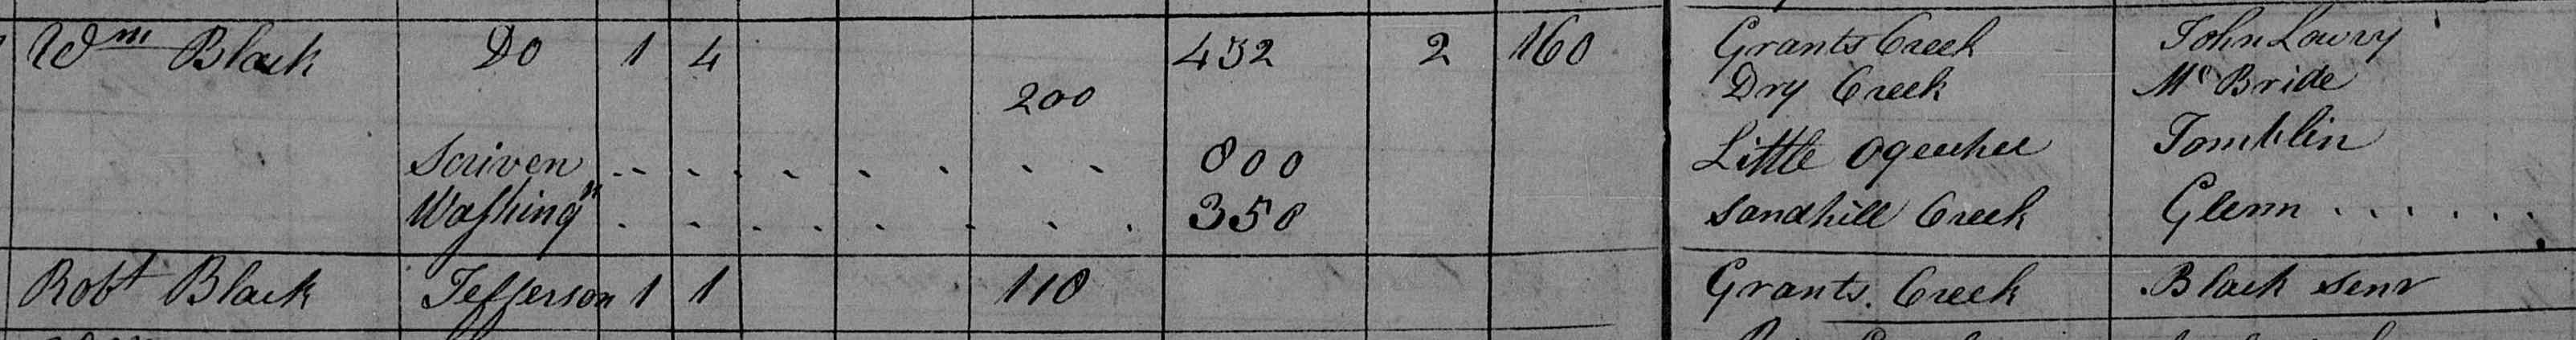 Wm Black Do 1 4 432 2 160 Grants Creek John Lowry
200 Dry Creek Mc Bride
Scriven 800 Little Ogeechee Tomblin
Washingn 350 Sandhill Creek Glenn
Robt Black Jefferson 1 1 110 Grants Creek Black Senr